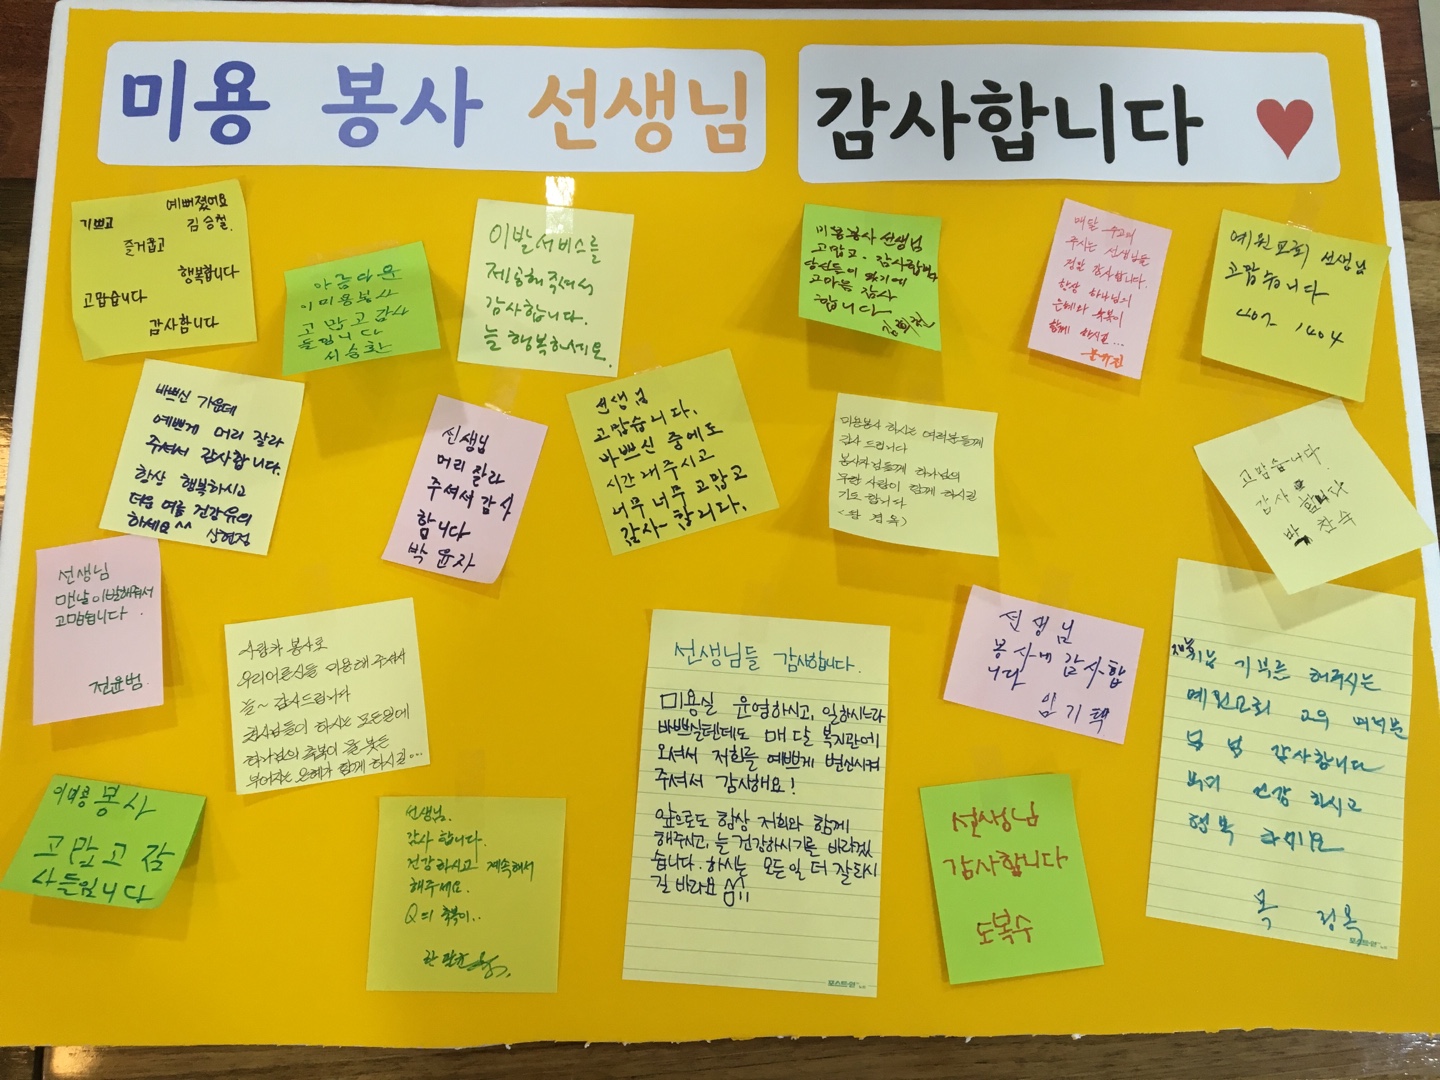 미용 봉사 선생님 감사합니다
예뻐졌어요
기쁘고 김승철.
즐겁고
행복합니다
고맙습니다
감사합니다
아름다운
이미용봉사
고맙고 감사
드립니다
서승환
이발 서비스를
제공해 주셔서
감사합니다.
늘 행복하세요.
미용봉사 선생님
고맙고. 감사합니다
당신들이 있기에
고마움 감사
합니다
매달 수고해
주시는 선생님들
정말 감사합니다.
항상 하나님의
은혜와 축복이
함께 하시길...
예원교회 선생님
고맙습니다
바쁘신 가운데
예쁘게 머리 잘라
주셔서 감사합니다.
항상 행복하시고
더욱 여름 건강유의
하세요^^
선생님
머리 잘라
주셔서 감사
합니다
박윤자
선생님
고맙습니다.
바쁘신 중에도
시간 내주시고
너무 너무 고맙고
감사~합니다.
미용봉사 하시는 여러분들께
감사 드립니다
봉사자님들께 하나님의
무한 사랑이 함께 하시길
기도 합니다
고맙습니다.
감사 합니다
박찬숙
선생님
맨날 이발해줘서
고맙습니다.
전윤범.
사랑과 봉사로
우리어르신들 미용해 주셔서
늘~ 감사드립니다
집사님들이 하시는 모든일에
하나님의 축복이 물 붓듯
부어지는 은혜가 함께 하시길...
선생님들 감사합니다.
미용실 운영하시고, 일하시느라
바쁘실텐데도 매달 복지관에
오셔서 저희를 예쁘게 변신시켜
주셔서 감사해요!
앞으로도 항상 저희와 함께
해주시고, 늘 건강하시기를 바라겠
습니다. 하시는 모든일 더 잘되시
길 바라요
선생님
봉사에 감사합
니다
임기택
재능 기부를 해주시는
예원교회 여러분
감사합니다
부디 건강 하시고
행복 하세요
목 정옥
포스트-잇
이미용 봉사
고맙고 감
사드립니다
선생님.
감사 합니다.
건강하시고 계속해서
해주세요.
축복이..
포스트-잇
선생님
감사합니다
도복수